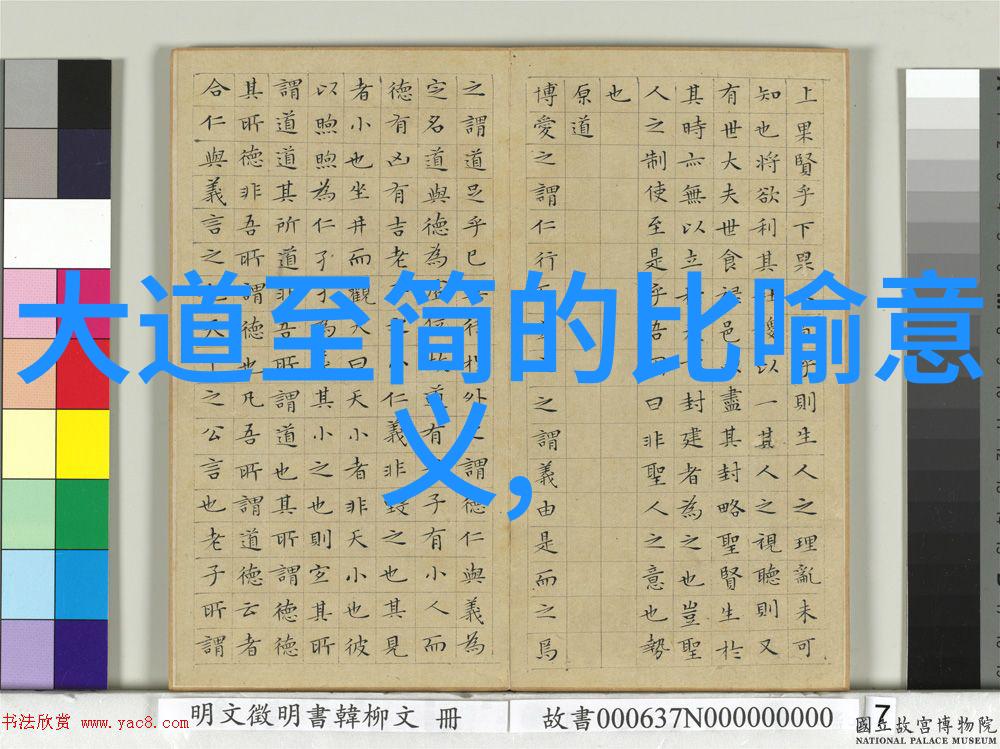 上果賢乎下果乎則生人之理亂未可
知也將欲利其社稷以一其人之視聽則又
有世大夫世食祿邑以盡其封略聖賢生於
其時亦無以立於封建者為之也豈聖
人之制使至是乎吾固曰非聖人之意也勢
也
原道
博愛之謂仁行而之之謂義由是而之焉
之謂道足乎己無待於外之謂德仁與義為
定名道與德為虛位故道有君子有小人而
德有凶有吉老子之小仁義非毀之也其見
者小也坐井而觀天曰天小者非天小也彼
以煦煦為仁孑孑為義其小之也則宜其所
謂道道其所道非吾所謂道也其所謂德德
其所德非吾所謂德也凡吾所謂道德云者
合仁與義言之也天下之公言也老子所謂
大道至简的比喻意
义,
明文徵明書韓柳文 冊
故書000637N000000000
7
書法欣赏 www.yac8.com
國立故宮博物院
NATIONAL PALACE MUSEUM